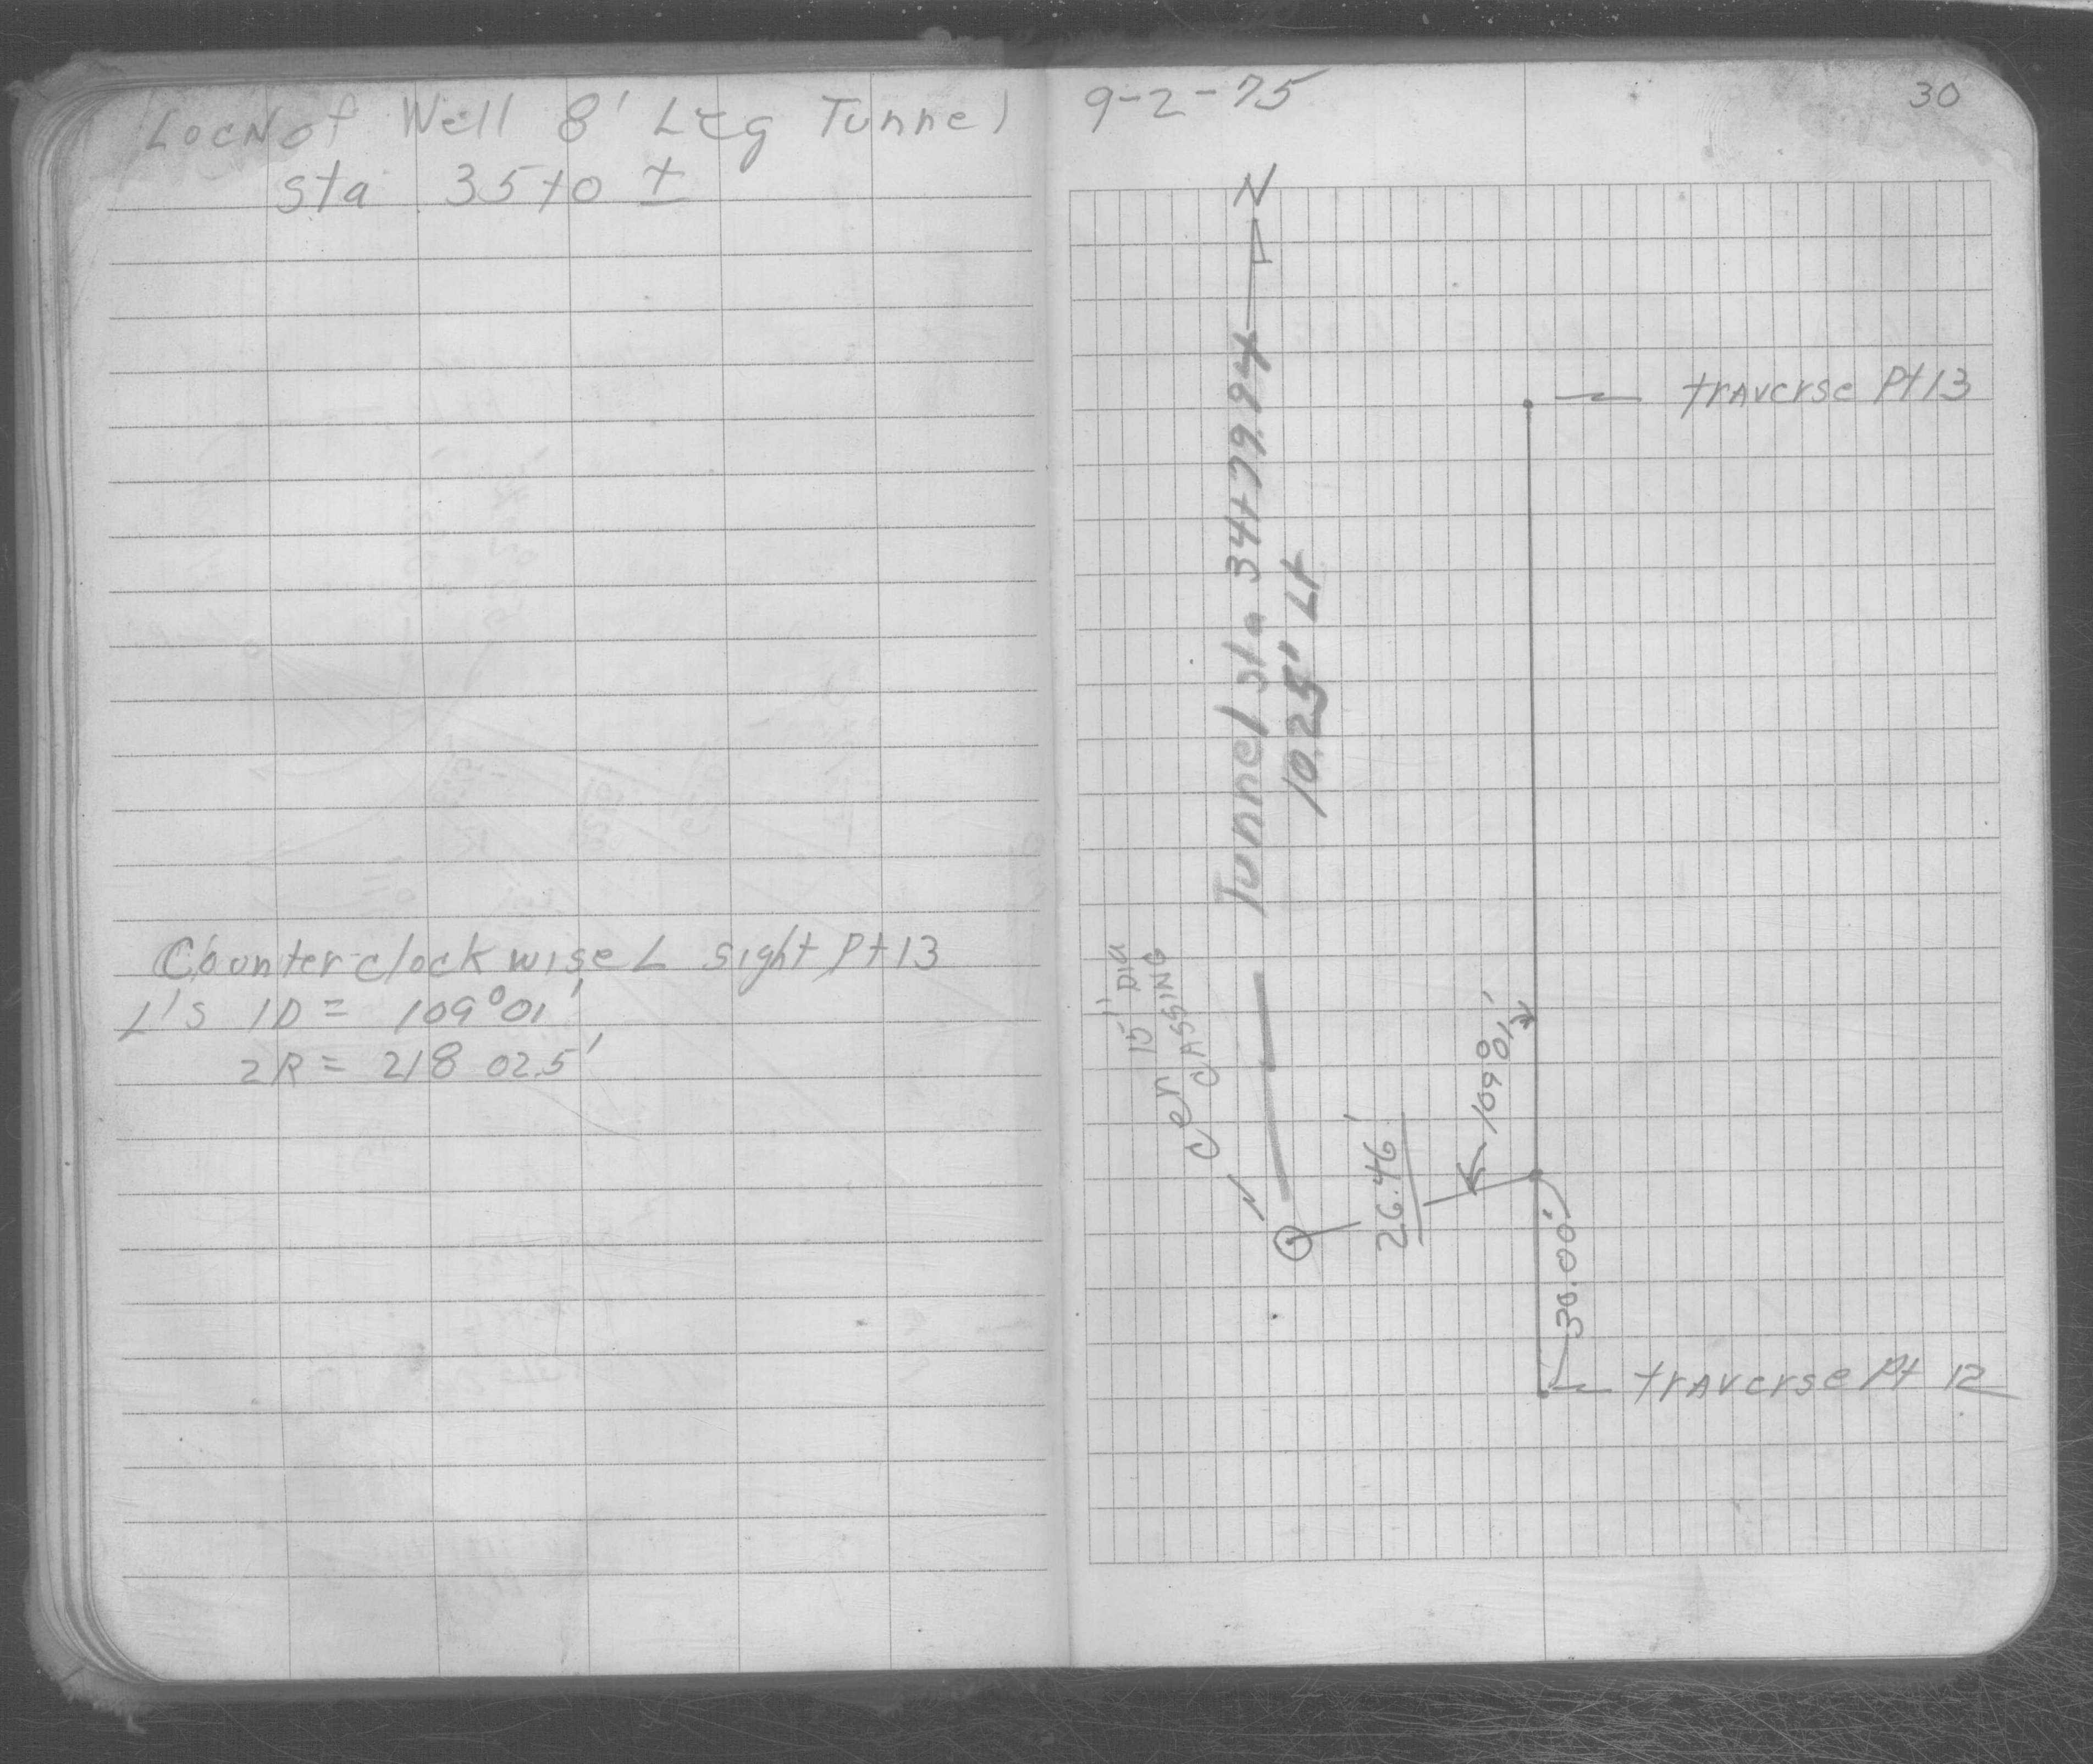 LocN of Well 8' Leg Tunnel
Sta 35+0 ±
Counter clock wise L sight Pt 13
L's 1D = 109°01'
2R = 218 02.5'
9-2-75
30
N
traverse Pt 13
Tunnel sta 34+79.94
10.25' Lt
15" DIA
Cen CASSING
109°01'
26.46'
30.00'
traverse Pt 12